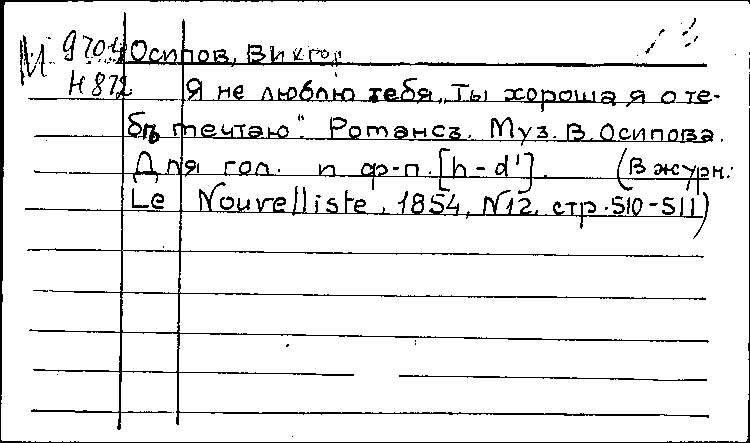 М 9704 Осипов, Виктор
Н 872 Я не люблю тебя, „Ты хороша я о те-
бѣ мечтаю". Романсъ. Муз. В. Осипова.
Для гол. и ф-п. [h-d']. (В журн.:
Le Nouvelliste, 1854, N12, стр. 510-511)